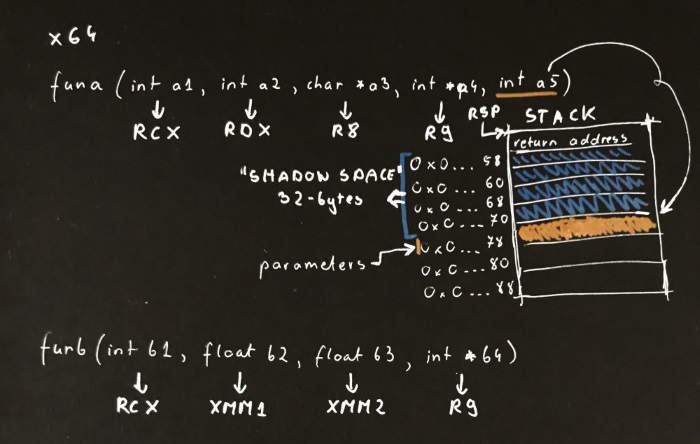 x64
funa (int a1, int a2, char *a3, int *a4, int a5)
RCX RDX R8 R9
RSP STACK
return address
"SHADOW SPACE"
32-bytes
0x0... 58
0x0... 60
0x0... 68
0x0... 70
parameters
0x0... 78
0x0... 80
0x0... 88
funb (int b1, float b2, float b3, int *b4)
RCX XMM1 XMM2 R9